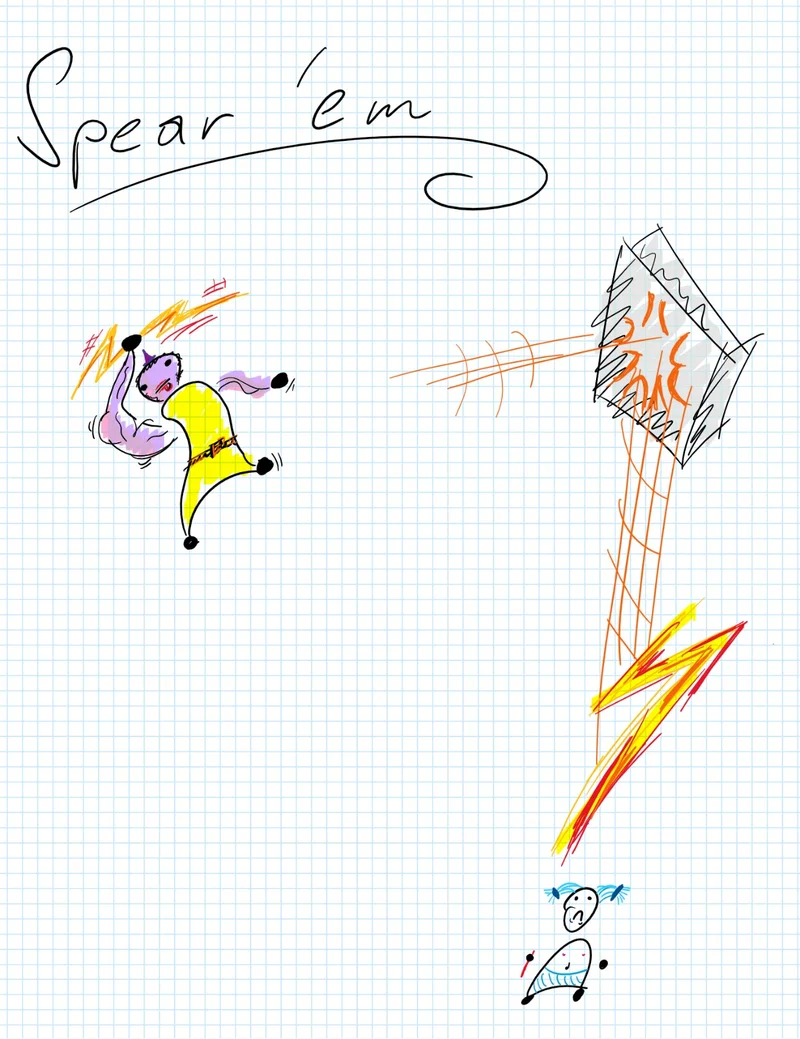 Spear 'em